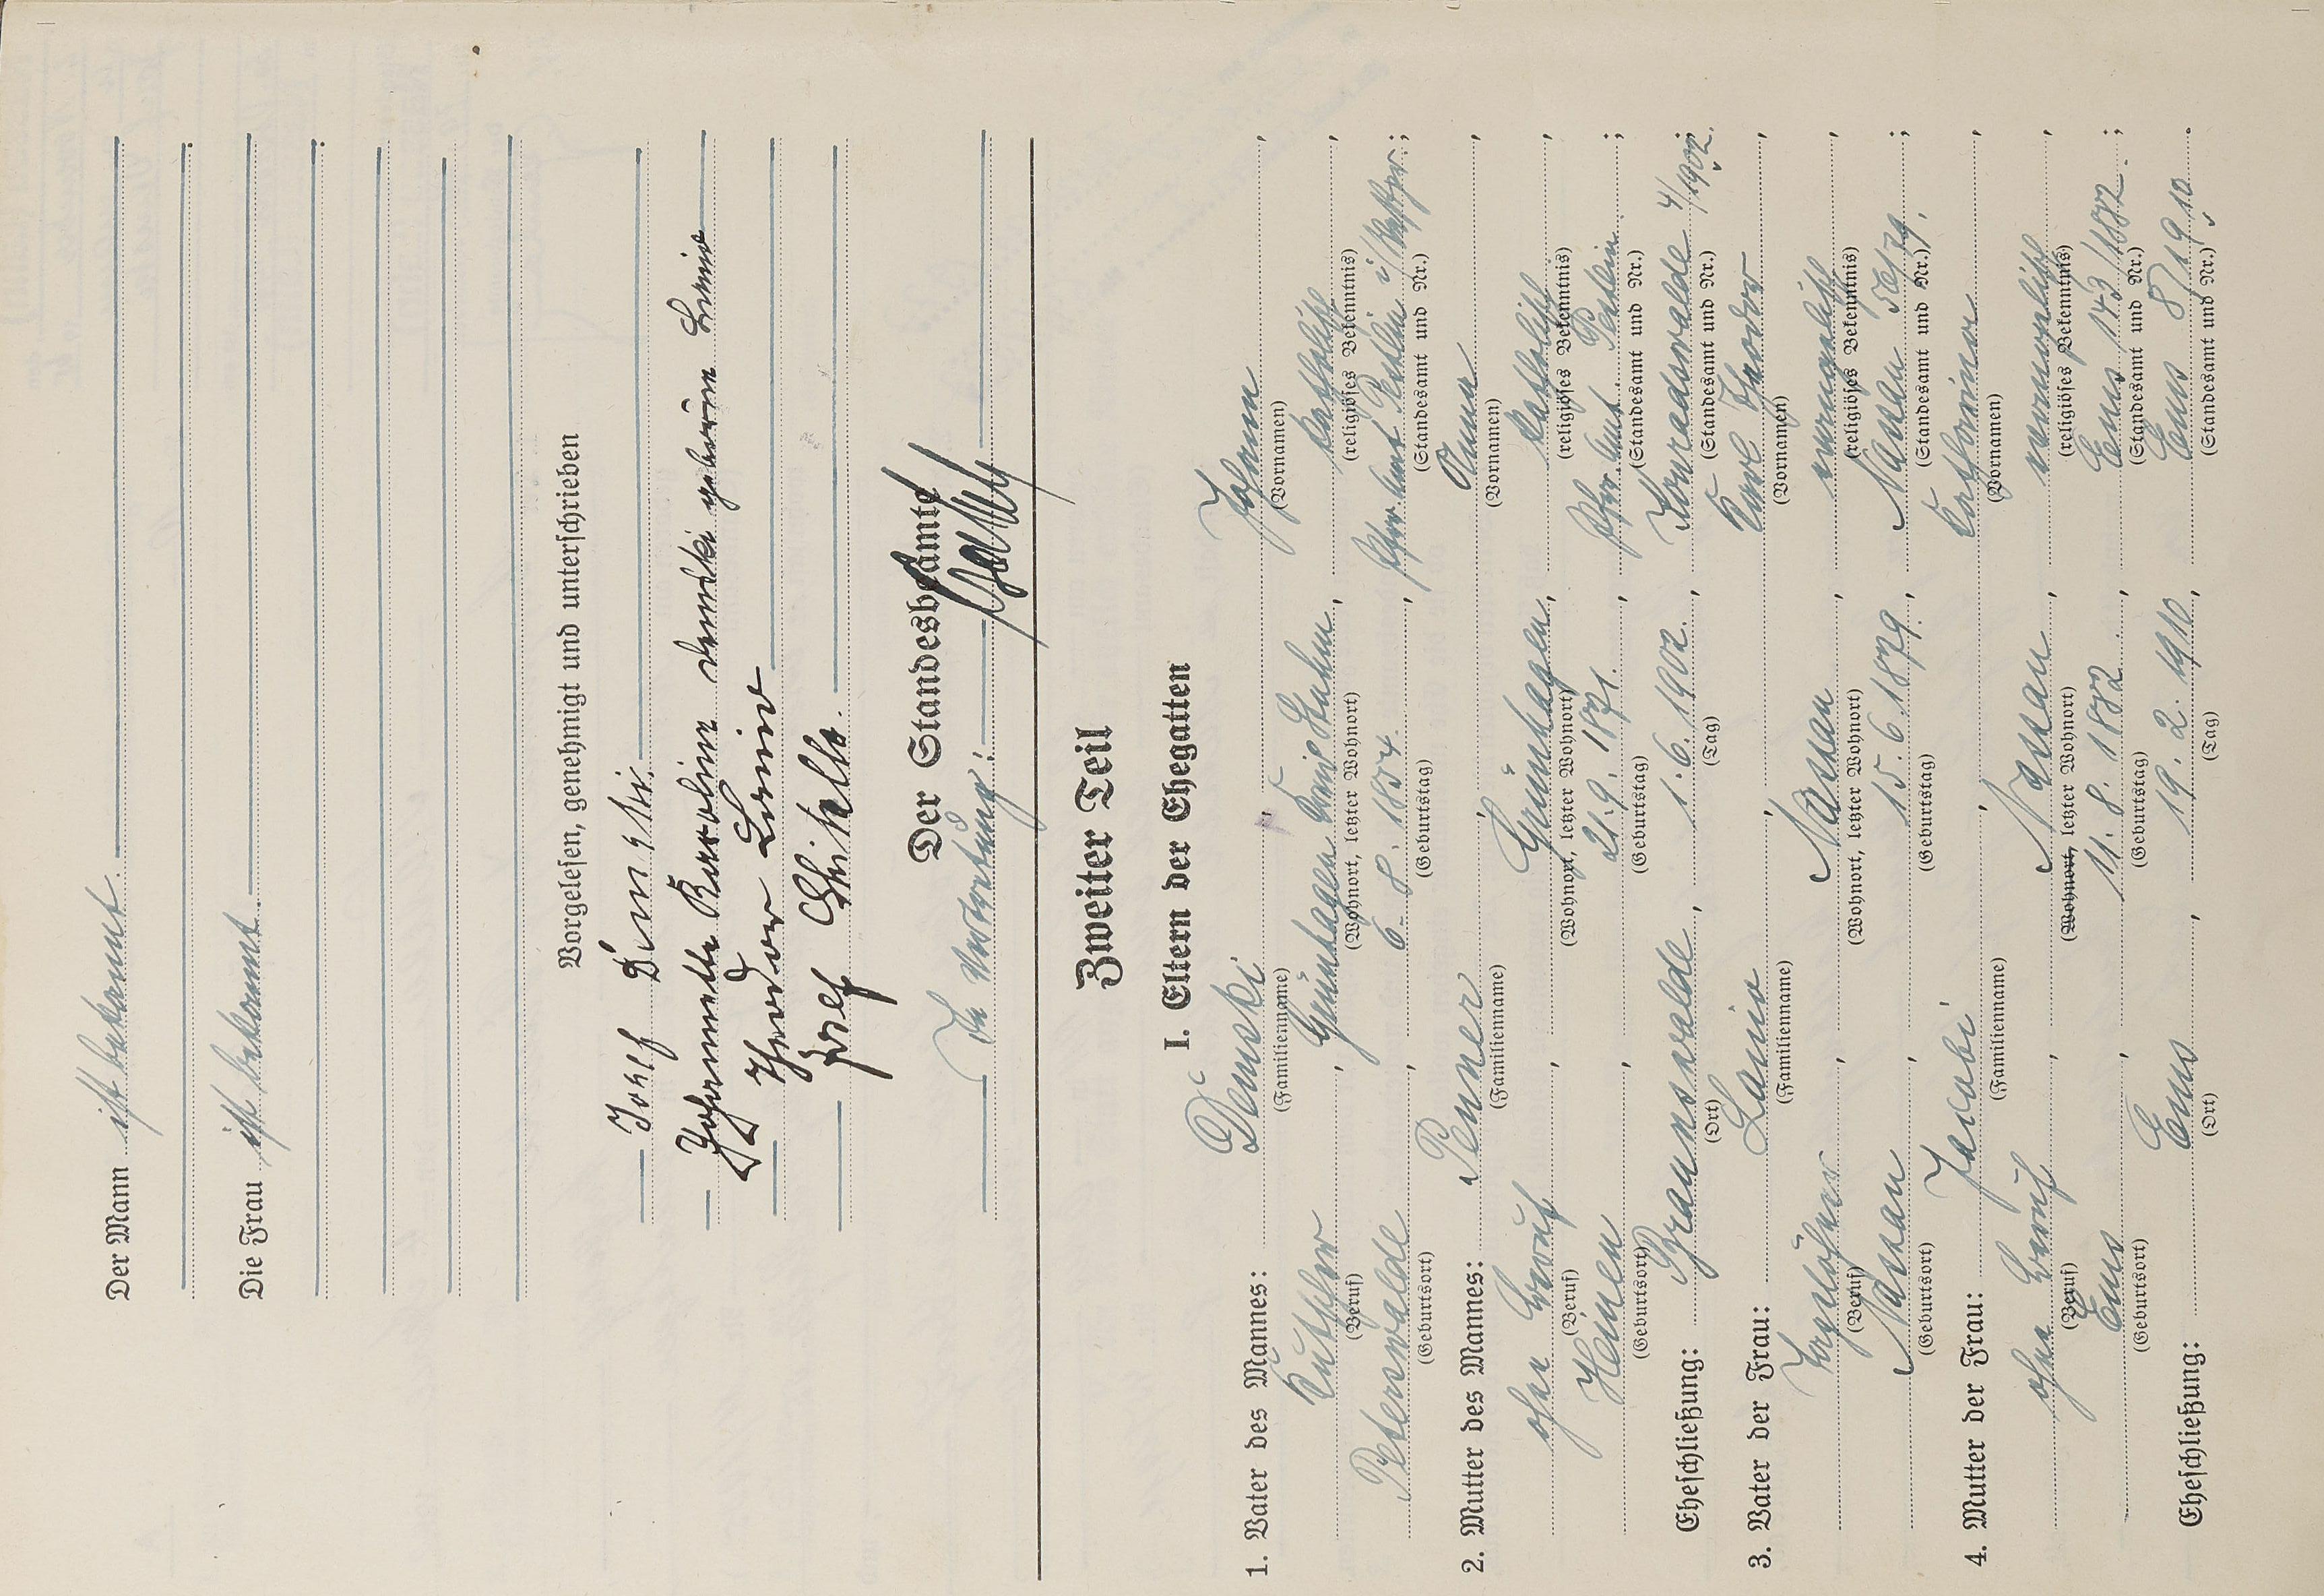 Der Mann ist bekannt.
Die Frau ist bekannt.
Vorgelesen, genehmigt und unterschrieben
Josef Demski.
Johannette Karoline Demski geborene Lanio
Theodor Lanio
Josef
Der Standesbeamte
In Vertretung:
Zweiter Teil
I. Eltern der Ehegatten
1. Vater des Mannes: Demski, Johann,
(Familienname) (Vornamen)
, Grünhagen Kreis Stuhm, katholisch,
(Beruf) (Wohnort, letzter Wohnort) (religiöses Bekenntnis)
Peterswalde, 6. 8. 1874, Pfarramt Pestlin i/Westpr.;
(Geburtsort) (Geburtstag) (Standesamt und Nr.)
2. Mutter des Mannes: Penner, Anna,
(Familienname) (Vornamen)
ohne Beruf, Grünhagen, katholisch,
(Beruf) (Wohnort, letzter Wohnort) (religiöses Bekenntnis)
, 21. 9. 1871, Pfarramt Pestlin;
(Geburtsort) (Geburtstag) (Standesamt und Nr.)
Eheschließung: Braunswalde, 1. 6. 1902, Konradswalde 4/1902;
(Ort) (Tag) (Standesamt und Nr.)
3. Vater der Frau: Lanio, Karl Theodor,
(Familienname) (Vornamen)
, Nassau, evangelisch,
(Beruf) (Wohnort, letzter Wohnort) (religiöses Bekenntnis)
Nassau, 15. 6. 1879, Nassau 58/79;
(Geburtsort) (Geburtstag) (Standesamt und Nr.)
4. Mutter der Frau: Jacobi, Katharina,
(Familienname) (Vornamen)
ohne Beruf, Nassau, evangelisch,
(Beruf) (Wohnort, letzter Wohnort) (religiöses Bekenntnis)
Ems, 11. 8. 1882, Ems 143/1882;
(Geburtsort) (Geburtstag) (Standesamt und Nr.)
Eheschließung: Ems, 19. 2. 1910, Ems 8/1910.
(Ort) (Tag) (Standesamt und Nr.)